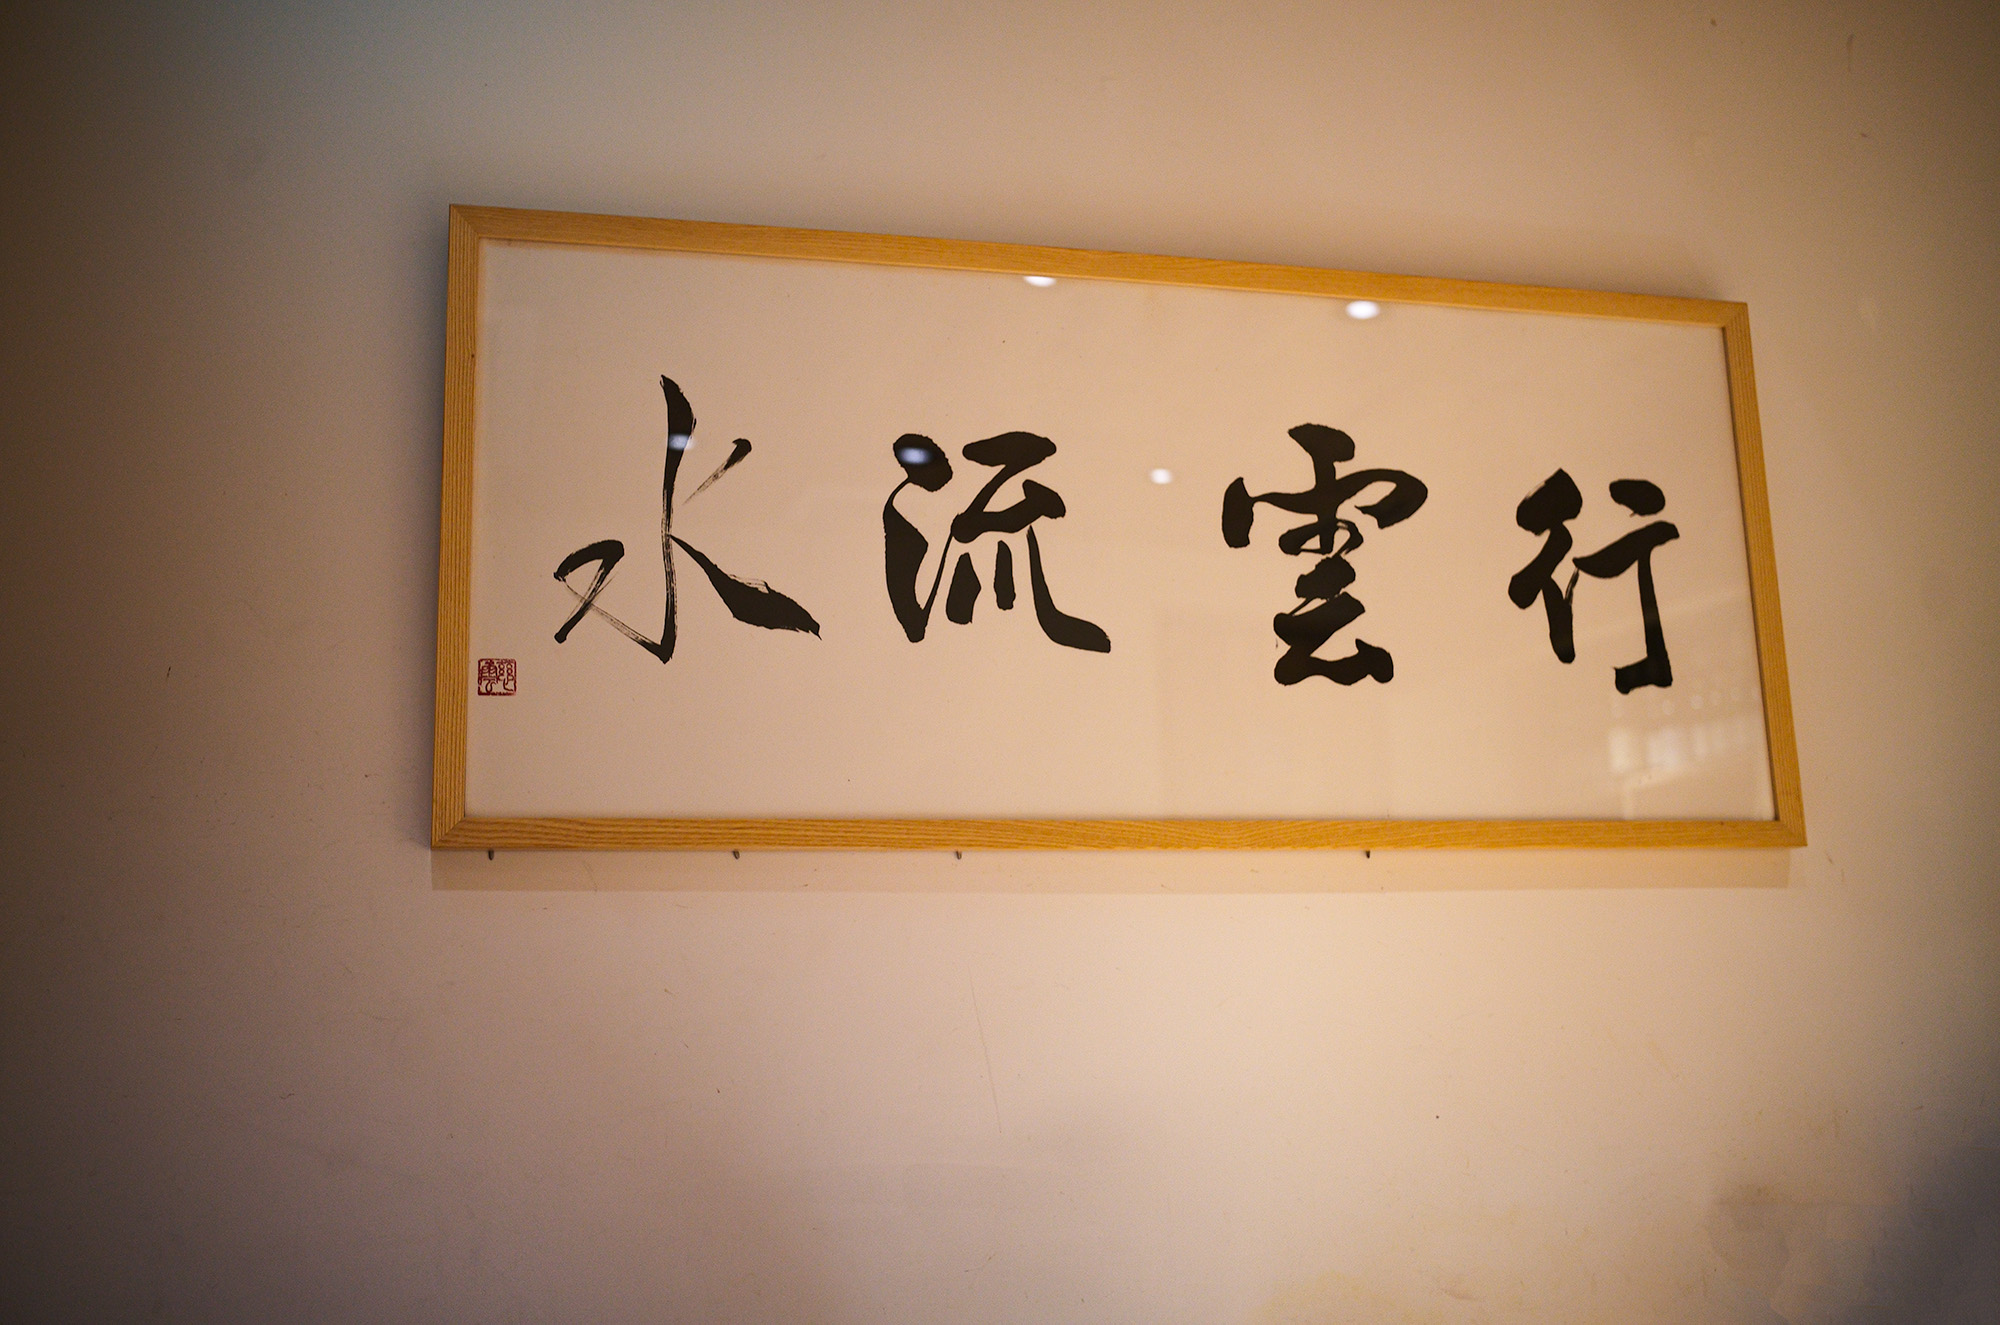 行雲流水